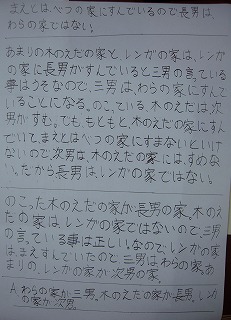 まえとは、べつの家にすんでいるので長男は、
わらの家ではない。
あまりの木のえだの家と、レンガの家は、レンガ
の家に長男がすんでいると三男の言っている
事はうそなので、三男は、わらの家にすんで
いることになる。のこっている、木のえだは次
男がすむ。でも、もともと、木のえだの家にすん
でいて、まえとはべつの家にすまないといけ
ないので次男は、木のえだの家には、すめな
い。だから長男は、レンガの家ではない。
のこった木のえだの家が長男の家。木のえ
だの家は、レンガの家ではないので、三男
の言っている事は正しい。なので、レンガの家
は、まえすんでいたのと 三男はわらの家。あ
まりの、レンガの家が次男の家。
A わらの家が三男。木のえだの家が長男。レンガ
の家が次男。